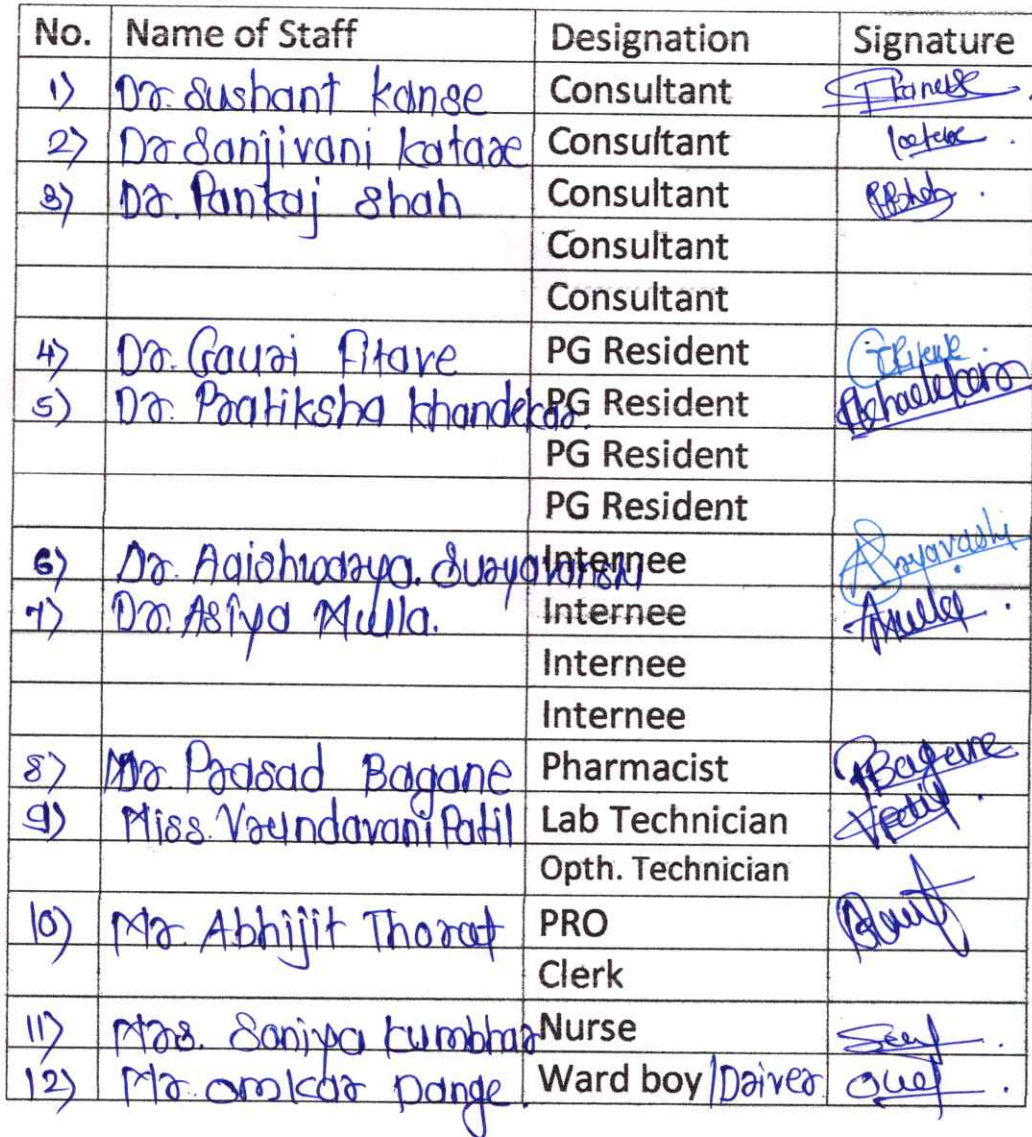 No. Name of Staff Designation Signature
1) Dr. Sushant Kanse Consultant
2) Dr Sanjivani Katare Consultant
3) Dr. Pankaj Shah Consultant
Consultant
Consultant
4) Dr. Gauri Fitave PG Resident
5) Dr. Pratiksha Khandekar. PG Resident
PG Resident
PG Resident
6) Dr. Aaishwarya. Suryavanshi Internee
7) Dr. Asiya Mulla. Internee
Internee
Internee
8) Mr Prasad Bagane Pharmacist
9) Miss. Vrundavani Patil Lab Technician
Opth. Technician
10) Mr. Abhijit Thorat PRO
Clerk
11) Mrs. Saniya Kumbhar Nurse
12) Mr. Omkar Dange. Ward boy/Driver